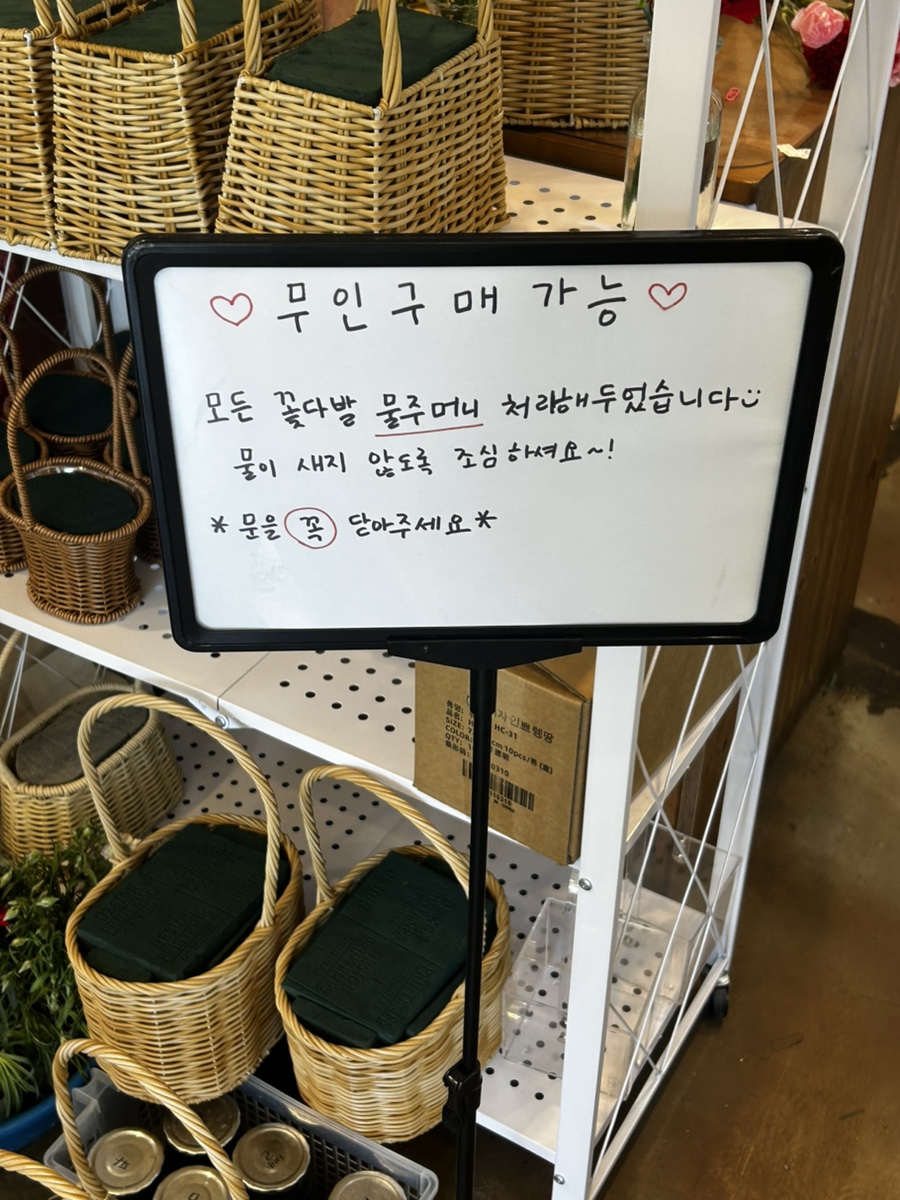 ♡ 무인구매 가능 ♡
모든 꽃다발 물주머니 처리해두었습니다
물이 새지 않도록 조심하셔요~!
* 문을 꼭 닫아주세요 *
HC-31
SIZE:
COLOR:
cm 10pcs/
QTY: